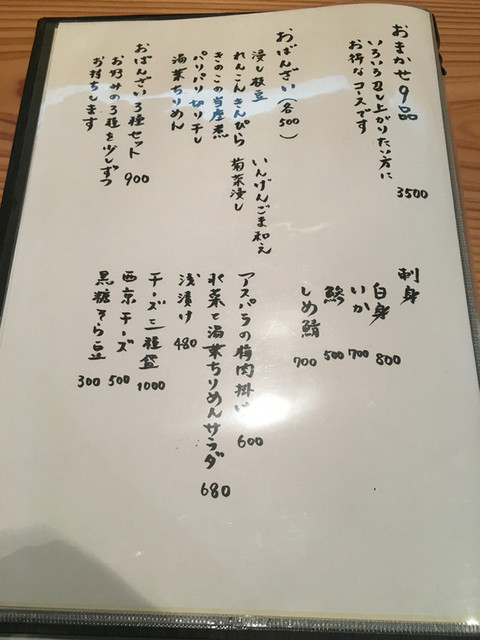 おまかせ9品
いろいろ召し上がりたい方に
お得なコースです
3500
おばんざい(各500)
浸し枝豆
いんげんごま和え
れんこんきんぴら
菊菜浸し
きのこの当座煮
パリパリ切り干し
湯葉ちりめん
おばんざい3種セット
900
お好みの3種を少しずつ
お持ちします
刺身
白身 800
いか 700
鯵 500
しめ鯖 700
アスパラの梅肉掛け 600
水菜と湯葉ちりめんサラダ 680
浅漬け 480
チーズ三種盛 1000
西京チーズ 500
黒糖そら豆 300